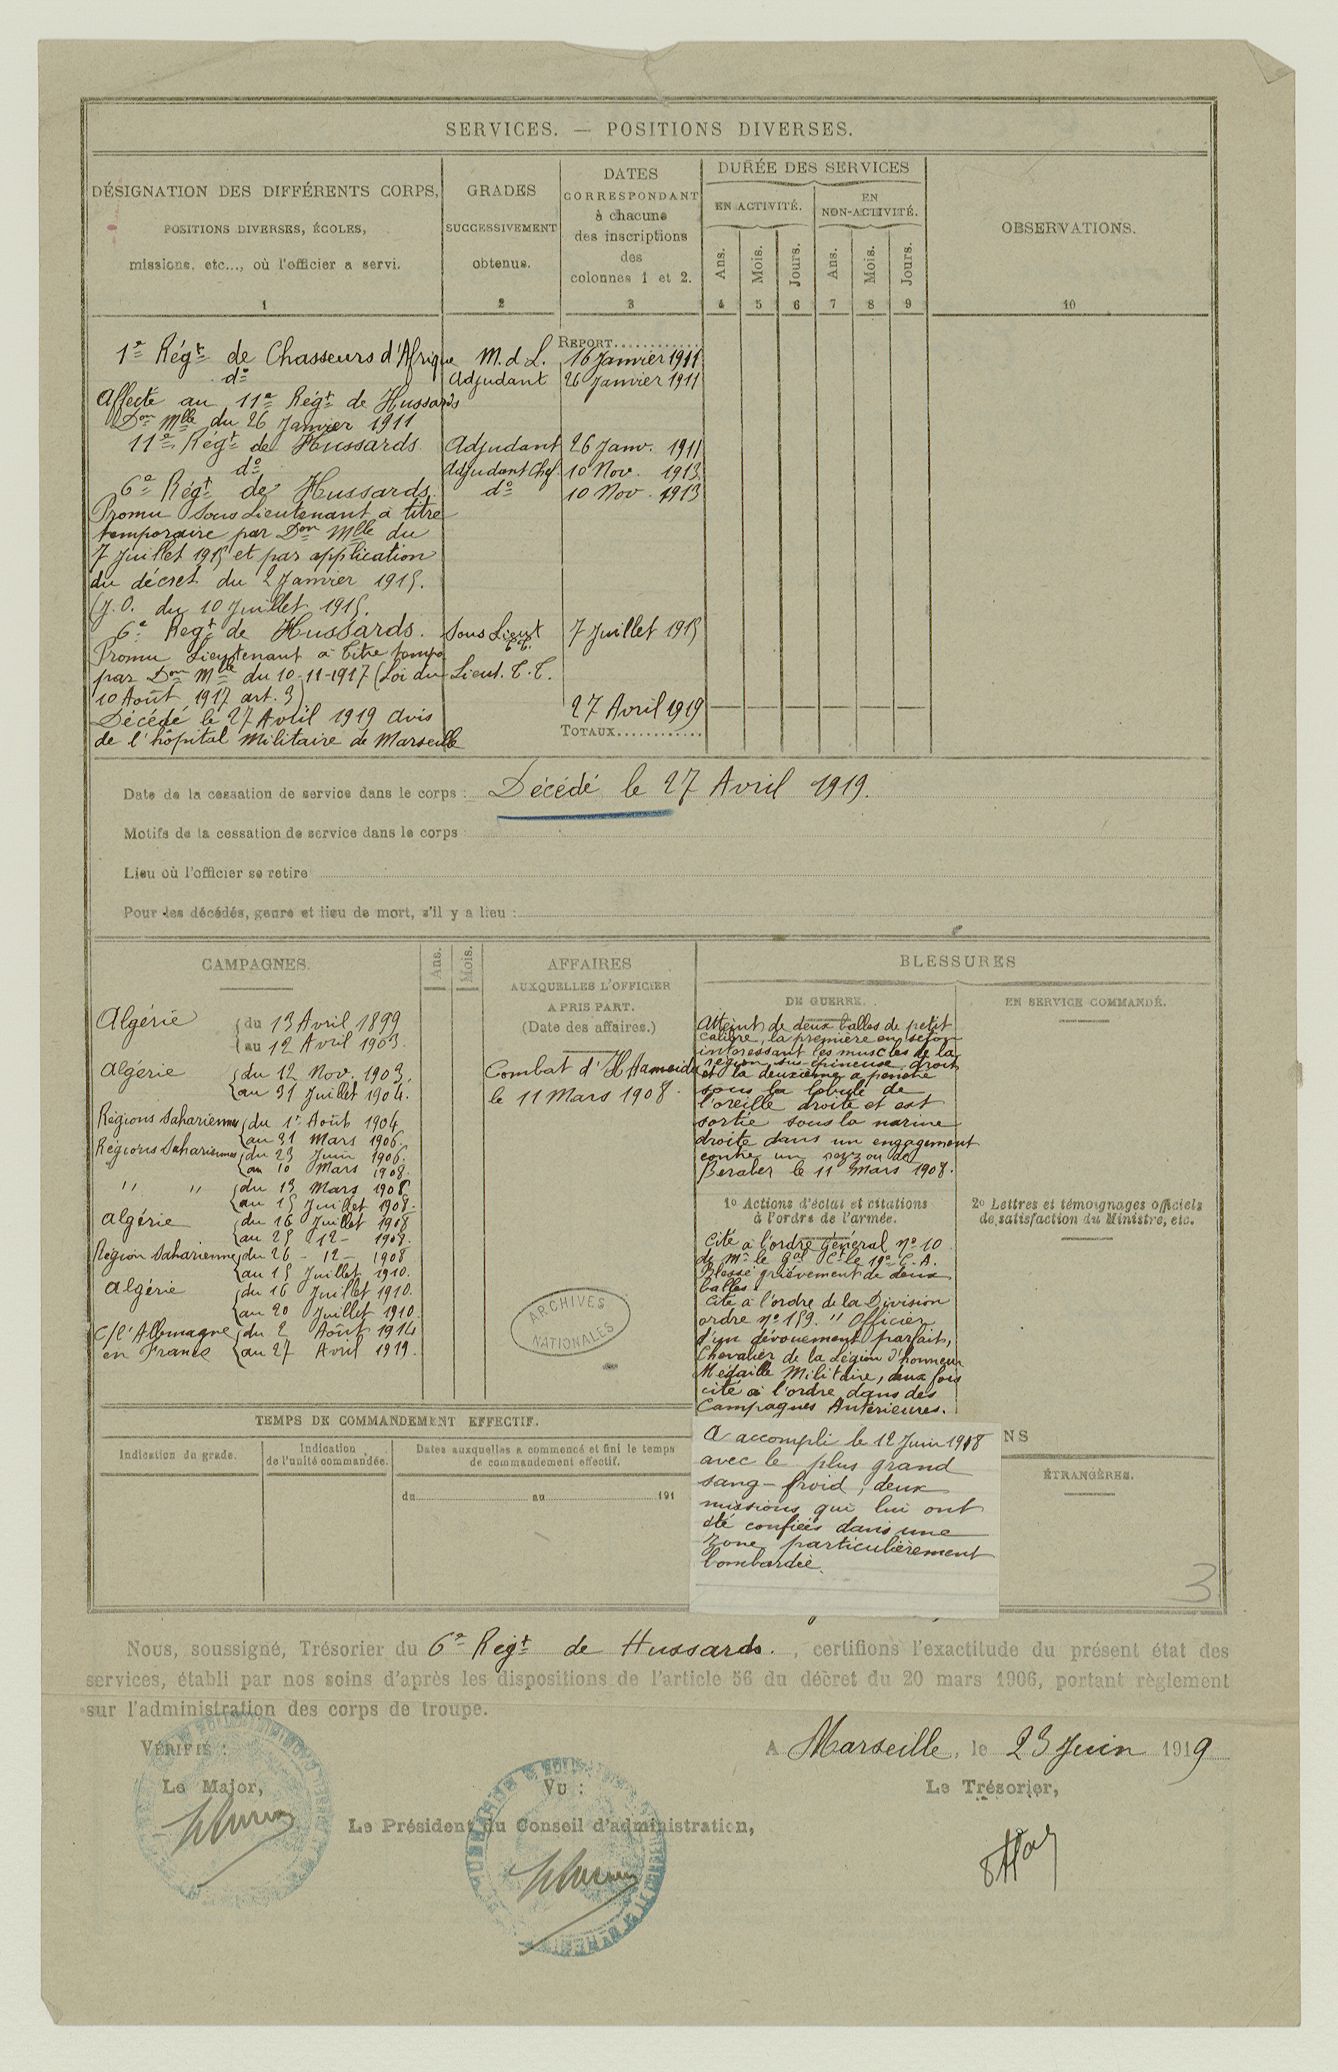 SERVICES. — POSITIONS DIVERSES.
DÉSIGNATION DES DIFFÉRENTS CORPS,
POSITIONS DIVERSES, ÉCOLES,
missions, etc..., où l'officier a servi.
1
GRADES
SUCCESSIVEMENT
obtenus.
2
DATES
CORRESPONDANT
à chacune
des inscriptions
des
colonnes 1 et 2.
3
DURÉE DES SERVICES
EN ACTIVITÉ.
EN
NON-ACTIVITÉ.
Ans. Mois. Jours. Ans. Mois. Jours.
4 5 6 7 8 9
OBSERVATIONS.
10
REPORT............
1er Régt de Chasseurs d'Afrique M. d L. 16 Janvier 1911
do Adjudant 26 Janvier 1911
Affecté au 11e Régt de Hussards
Don Mlle du 26 Janvier 1911
11e Régt de Hussards Adjudant 26 Janv. 1911
do Adjudant Chef. 10 Nov. 1913
6e Régt de Hussards. do 10 Nov. 1913
Promu Sous Lieutenant à titre
temporaire par Don Mlle du
7 Juillet 1915 et par application
du décret du 2 Janvier 1915.
(J.O. du 10 Juillet 1915.
6e Regt de Hussards. Sous Lieut T.T. 7 Juillet 1915
Promu Lieutenant à Titre tempo
par Don Mlle du 10-11-1917 (Loi du Lieut. T.T.
10 Août 1917 art. 3)
Décédé le 27 Avril 1919 avis 27 Avril 1919
de l'hôpital Militaire de Marseille
TOTAUX............
Date de la cessation de service dans le corps : Décédé le 27 Avril 1919.
Motifs de la cessation de service dans le corps
Lieu où l'officier se retire
Pour les décédés, genre et lieu de mort, s'il y a lieu :
CAMPAGNES.
Ans. Mois.
Algérie { du 13 Avril 1899
{ au 12 Avril 1903.
Algérie { du 12 Nov. 1903.
{ au 31 Juillet 1904.
Régions Sahariennes { du 1er Août 1904
{ au 31 Mars 1906.
Régions Sahariennes { du 23 Juin 1906.
{ au 10 Mars 1908.
" " { du 13 Mars 1908
{ au 15 Juillet 1908.
Algérie { du 16 Juillet 1908
{ au 25 -12- 1908.
Région Saharienne { du 26 - 12 - 1908
{ au 15 Juillet 1910.
Algérie { du 16 Juillet 1910.
{ au 20 Juillet 1910.
C/l'Allemagne { du 2 Août 1914
en France { au 27 Avril 1919.
AFFAIRES
AUXQUELLES L'OFFICIER
A PRIS PART.
(Date des affaires.)
Combat d'
le 11 Mars 1908.
ARCHIVES
NATIONALES
BLESSURES
DE GUERRE.
Atteint de deux balles de petit
calibre, la première en seton
intéressant les muscles de la
région sus épineuse droite
et la deuxième a pénétré
sous la lobule de
l'oreille droite et est
sortie sous la narine
droite dans un engagement
contre un rezzou de
Beraber le 11 Mars 1908.
EN SERVICE COMMANDÉ.
1o Actions d'éclat et citations
à l'ordre de l'armée.
Cité à l'ordre général No 10
de Mr le Gal Ct le 19e C.A.
Blessé grièvement de deux
balles.
Cité à l'ordre de la Division
ordre no 159. " Officier
d'un dévouement parfait,
Chevalier de la Légion d'honneur
Médaille Militaire, deux fois
cité à l'ordre dans des
Campagnes Antérieures.
A accompli le 12 Juin 1918
avec le plus grand
sang-froid, deux
missions qui lui ont
été confiées dans une
zone particulièrement
bombardée.
2o Lettres et témoignages officiels
de satisfaction du Ministre, etc.
NS
ÉTRANGÈRES.
TEMPS DE COMMANDEMENT EFFECTIF.
Indication du grade.
Indication
de l'unité commandée.
Dates auxquelles a commencé et fini le temps
de commandement effectif.
du au 191
3
Nous, soussigné, Trésorier du 6e Régt de Hussards. , certifions l'exactitude du présent état des
services, établi par nos soins d'après les dispositions de l'article 56 du décret du 20 mars 1906, portant règlement
sur l'administration des corps de troupe.
A Marseille, le 23 Juin 1919
VÉRIFIÉ :
Le Major,
Vu :
Le Président du Conseil d'administration,
Le Trésorier,